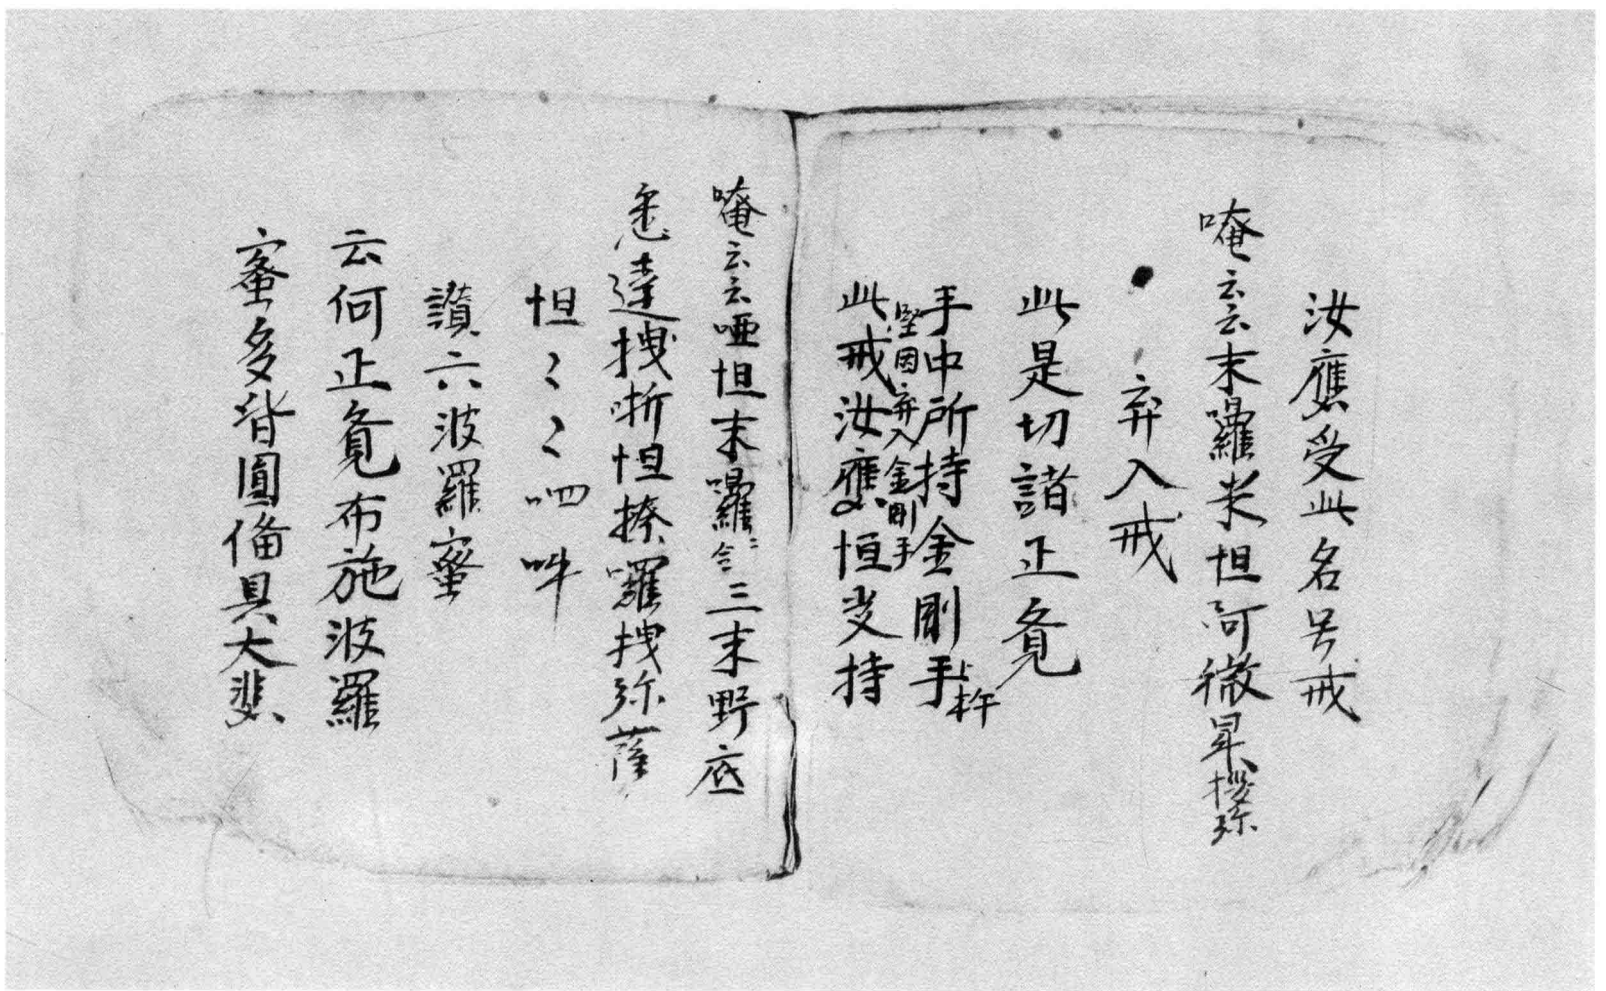 汝應受此名号戒
唵云云末囉米怛阿微
弃入戒
此是切諸正覓
手中所持金剛手
堅因弃入金剛手
此戒汝應恒受持
唵云云哑怛末囉三末野底
悉達拽哳怛搸囉拽弥薩
怛〻〻呬吽
讃六波羅蜜
云何正覓布施波羅
蜜多皆圓俻具大悲